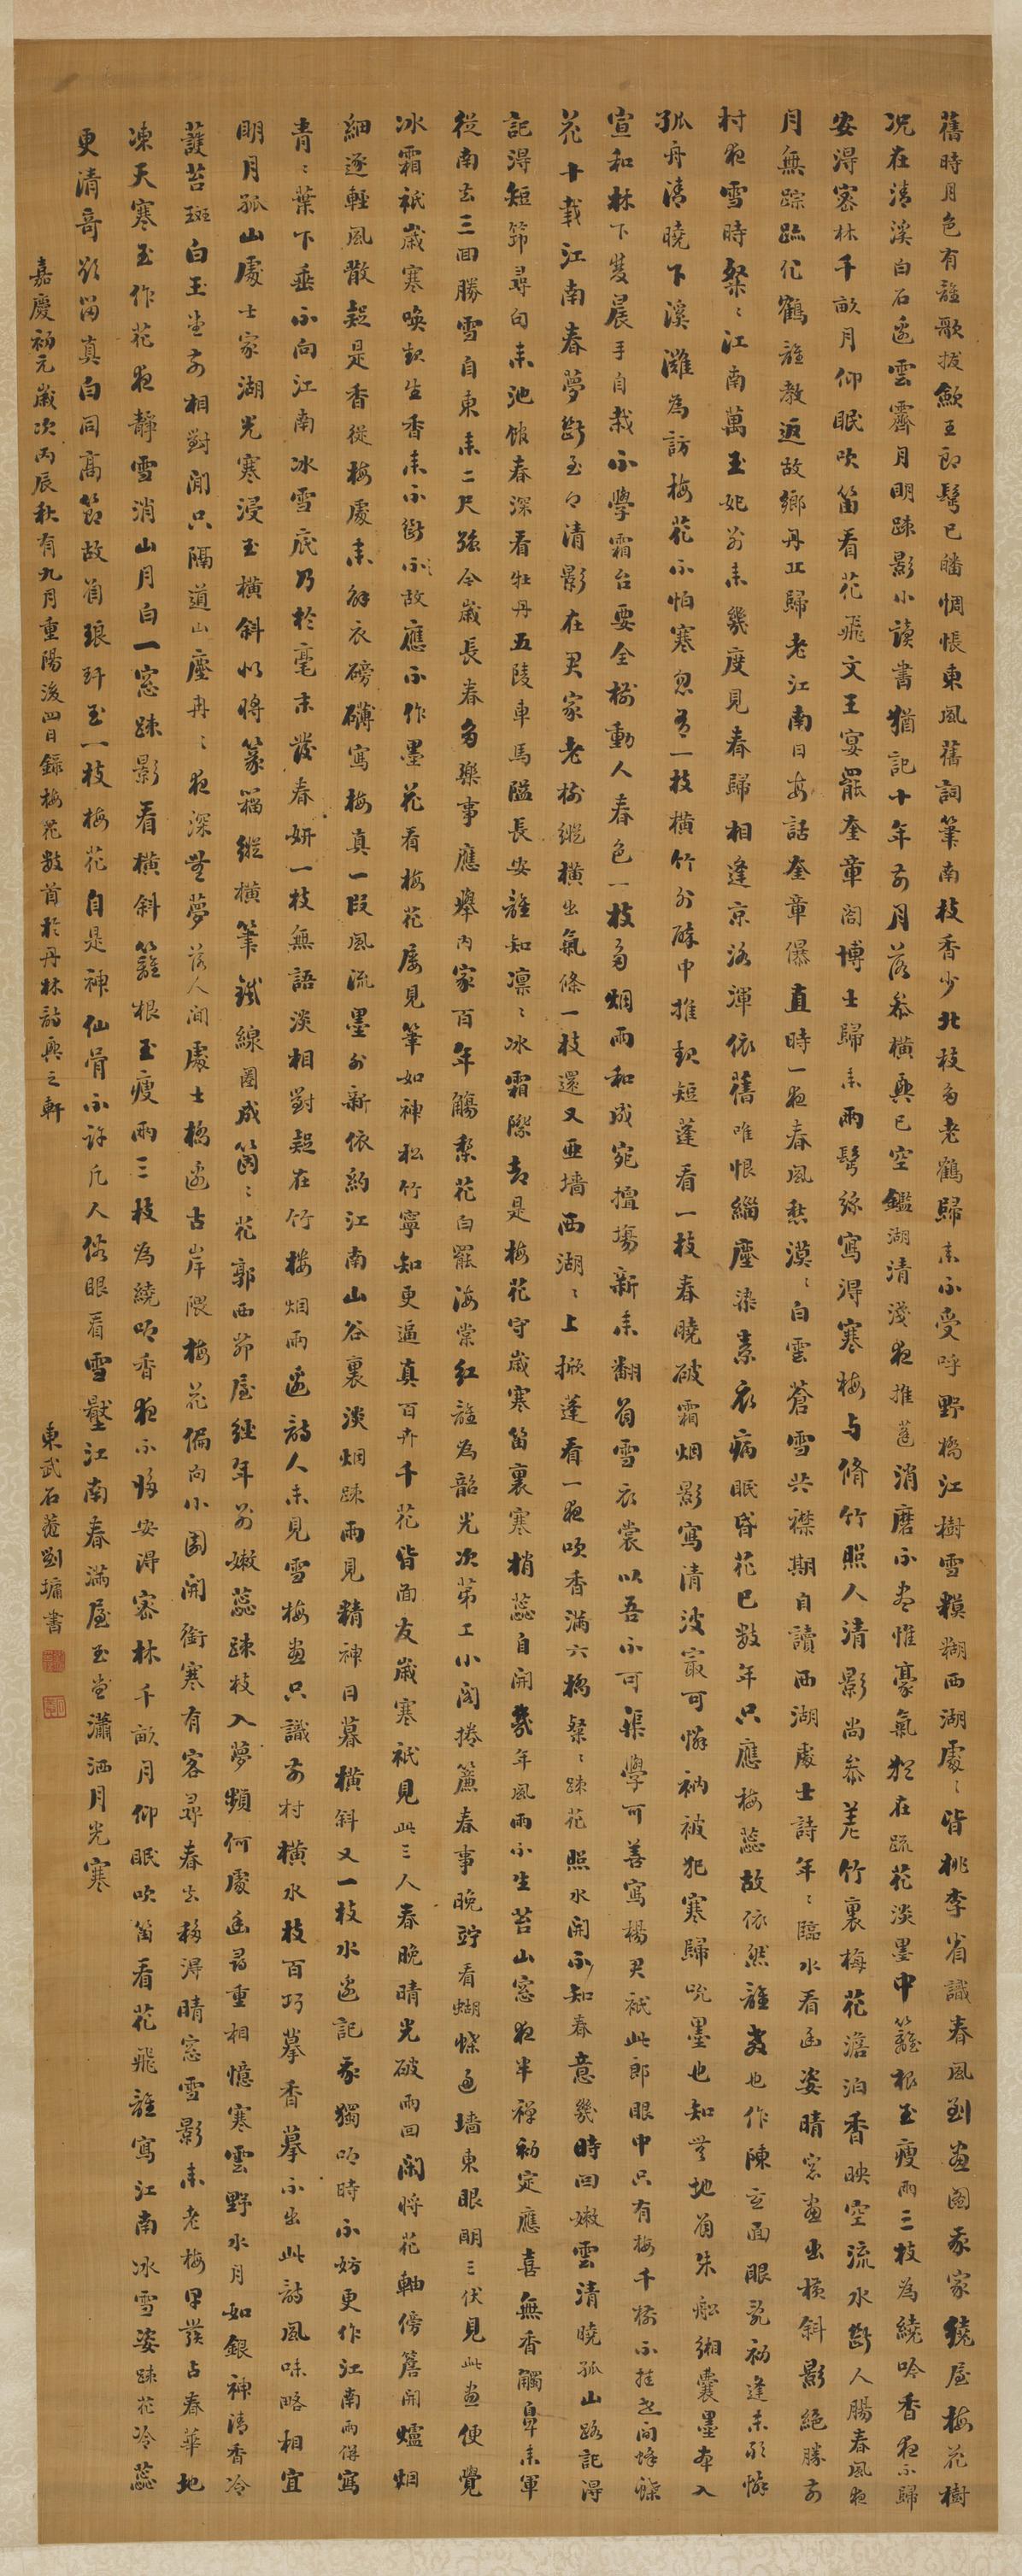 舊時月色有誰歌拔歙王郎鬢已皤惆悵東風舊詞筆南枝香少北枝多老鶴歸来不受呼野橋江樹雪模糊西湖處〻皆桃李省識春風到畫圖家家繞屋梅花樹
况在清溪白石邊雲霽月明踈影小讀書猶記十年前月落参橫興已空鑑湖清淺夜推蓬消磨不盡惟豪氣猶在疏花淡墨中籬根玉瘦兩三枝為繞吟香夜不歸
安得密林千畝月仰眠吹笛看花飛文王宴罷奎章閣博士歸来兩鬢絲寫得寒梅与脩竹照人清影尚参差竹裏梅花澹泊香映空流水斷人腸春風夜
月無踪跡化鶴誰教返故鄉丹丘歸老江南日每話奎章儤直時一夜春風愁漠〻白雲蒼雪共襟期自讀西湖處士詩年〻臨水看幽姿晴窓畫出橫斜影絕勝前
村夜雪時粲〻江南萬玉妃前来幾度見春歸相逢京洛渾依舊唯恨緇塵染素衣病眠昏花已數年只應梅蕊故依然誰教也作陳玄面眼亂初逢未敢憐
孤舟清曉下溪灘為訪梅花不怕寒忽有一枝橫竹外醉中推起短蓬看一枝春曉破霜烟影寫清波最可憐衲被犯寒歸吮墨也知無地著朱舩緗囊墨本入
宣和林下雙晨手自栽不學霜台要全樹動人春色一枝多烟雨和成宛擅場新来翻著雪衣裳以吾不可渠學可善寫楊君祇此郎眼中只有梅千樹不挂世間蜂蝶
花十載江南春夢斷玉〻清影在君家老樹縱橫出氣條一枝還又亞墻西湖〻上掀蓬看一夜吹香滿六橋粲〻踈花照水開不知春意幾時回嫩雲清曉孤山路記得
記得短筇尋句来池館春深看牡丹五陵車馬隘長安誰知凛〻冰霜際却是梅花守歲寒笛裏寒梢蕊自開幾年風雨不生苔山窓夜半禪初定應喜無香觸鼻来軍
從南去三回勝雪自東来二尺強今歲長春多樂事應舉内家百年觴梨花白罷海棠紅誰為韶光次第工小閣捲簾春事晚竚看蝴蝶過墻東眼明三伏見此畫便覺
冰霜祇歲寒喚起生香来不斷不故應不作墨花看梅花屢見筆如神松竹寧知更逼真百卉千花皆面友歲寒祇見此三人春晚晴光破雨回閑將花軸傍簷開爐烟
細逐輕風散疑是香從梅處来解衣磅礴寫梅真一段風流墨外新依約江南山谷裏淡烟踈雨見精神日暮橫斜又一枝水邊記我獨吟時不妨更作江南雨併寫
青〻葉下垂不向江南冰雪底乃於毫末發春妍一枝無語淡相對疑在竹樓烟雨邊詩人未見雪梅畫只識前村橫水枝百巧摹香摹不出此詩風味略相宜
明月孤山處士家湖光寒浸玉橫斜似將篆籀縱橫筆鐵線圈成箇〻花郭西茆屋經年別嫩蕊踈枝入夢頻何處幽尋重相憶寒雲野水月如銀神清香冷
護苔斑白玉堂前相對閒只隔道山塵冉〻夜深無夢落人間處士橋邊古岸隈梅花偏向小園開銜寒有客尋春去移得晴窓雪影来老梅早發占春華地
凍天寒玉作花夜靜雪消山月白一窓踈影看橫斜籬根玉瘦兩三枝為繞吟香夜不歸安得密林千畝月仰眠吹笛看花飛誰寫江南冰雪姿踈花冷蕊
更清奇欲留真白同高節故著琅玕玉一枝梅花自是神仙骨不許凡人俗眼看雪壓江南春滿屋玉堂瀟洒月光寒
嘉慶初元歲次丙辰秋有九月重陽後四日錄梅花數首於丹林詩興之軒
東武石菴劉墉書